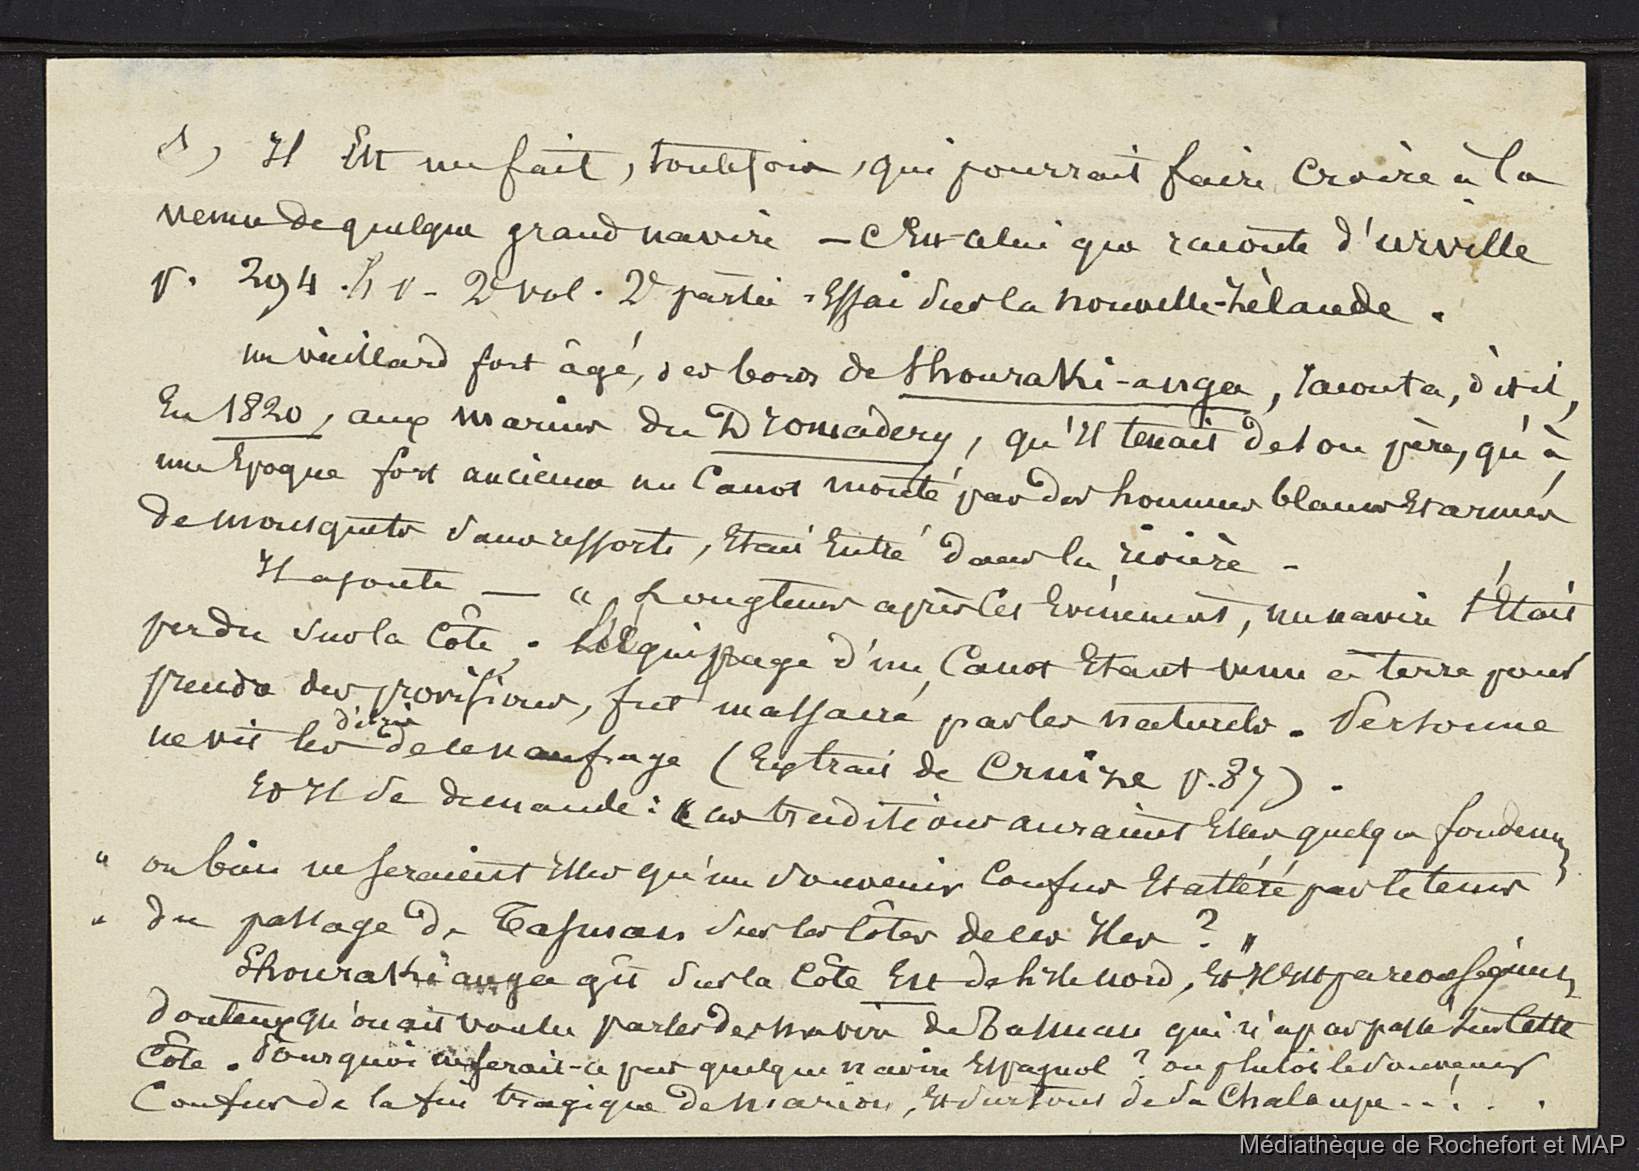 1) Il Est un fait, toutefois, qui pourrait faire croire à la
venue de quelque grand navire – C'Est celui que raconte d'urville
p. 294. 2e vol. 2e partie, Essai sur la nouvelle-Zélande.
un vieillard fort âgé, des bords de Shouraki-anga, raconta, dit il,
En 1820, aux marins du Dromadery, qu'Il tenait de son père, qu'à
une Epoque fort ancienne un Canot monté par des hommes blancs Et armés
de mousquets sans ressorts, Etait Entré dans la rivière –
Il ajoute — " Longtems après cet Evénement, un navire s'Etait
perdu sur la Côte. L'équipage d'un Canot Etant venu à terre pour
prendre des provisions, fut massacré par les naturels. Personne
ne vit les débris de ce naufrage (Extrait de Cruize p. 87).
Et Il se demande: " Ces traditions auraient Elles quelque fondement,
" ou bien ne seraient Elles qu'un souvenir Confus Et altéré par le tems
" du passage de Tasman sur les Côtes de ces Iles ? "
Shouraki anga gît sur la Côte Est de l'Ile nord, Et Il Est par conséquent
douteux qu'on ait voulu parler des navires de Tasman qui n'a pas passé sur Cette
Côte. Pourquoi ne serait-ce pas quelque navire Espagnol ? ou plutôt le souvenir
Confus de la fin tragique de Marion, Et surtout de sa Chaloupe...!
Médiathèque de Rochefort et MAP